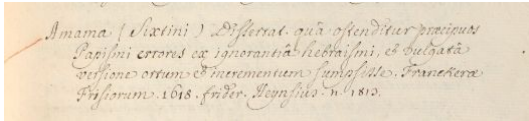 Amama (Sixtini) Dissertat. quâ ostenditur præcipuos
Papismi errores ex ignorantiâ hebraismi, et vulgatâ
versione ortum et incrementum sumpsisse. Franekeræ
Frisiorum. 1618. frider. Heynsius. 11. 1813.